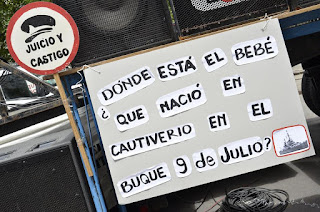 JUICIO Y
CASTIGO
DÓNDE ESTÁ EL BEBÉ
¿ QUE NACIÓ EN
CAUTIVERIO EN EL
BUQUE 9 de JULIO?